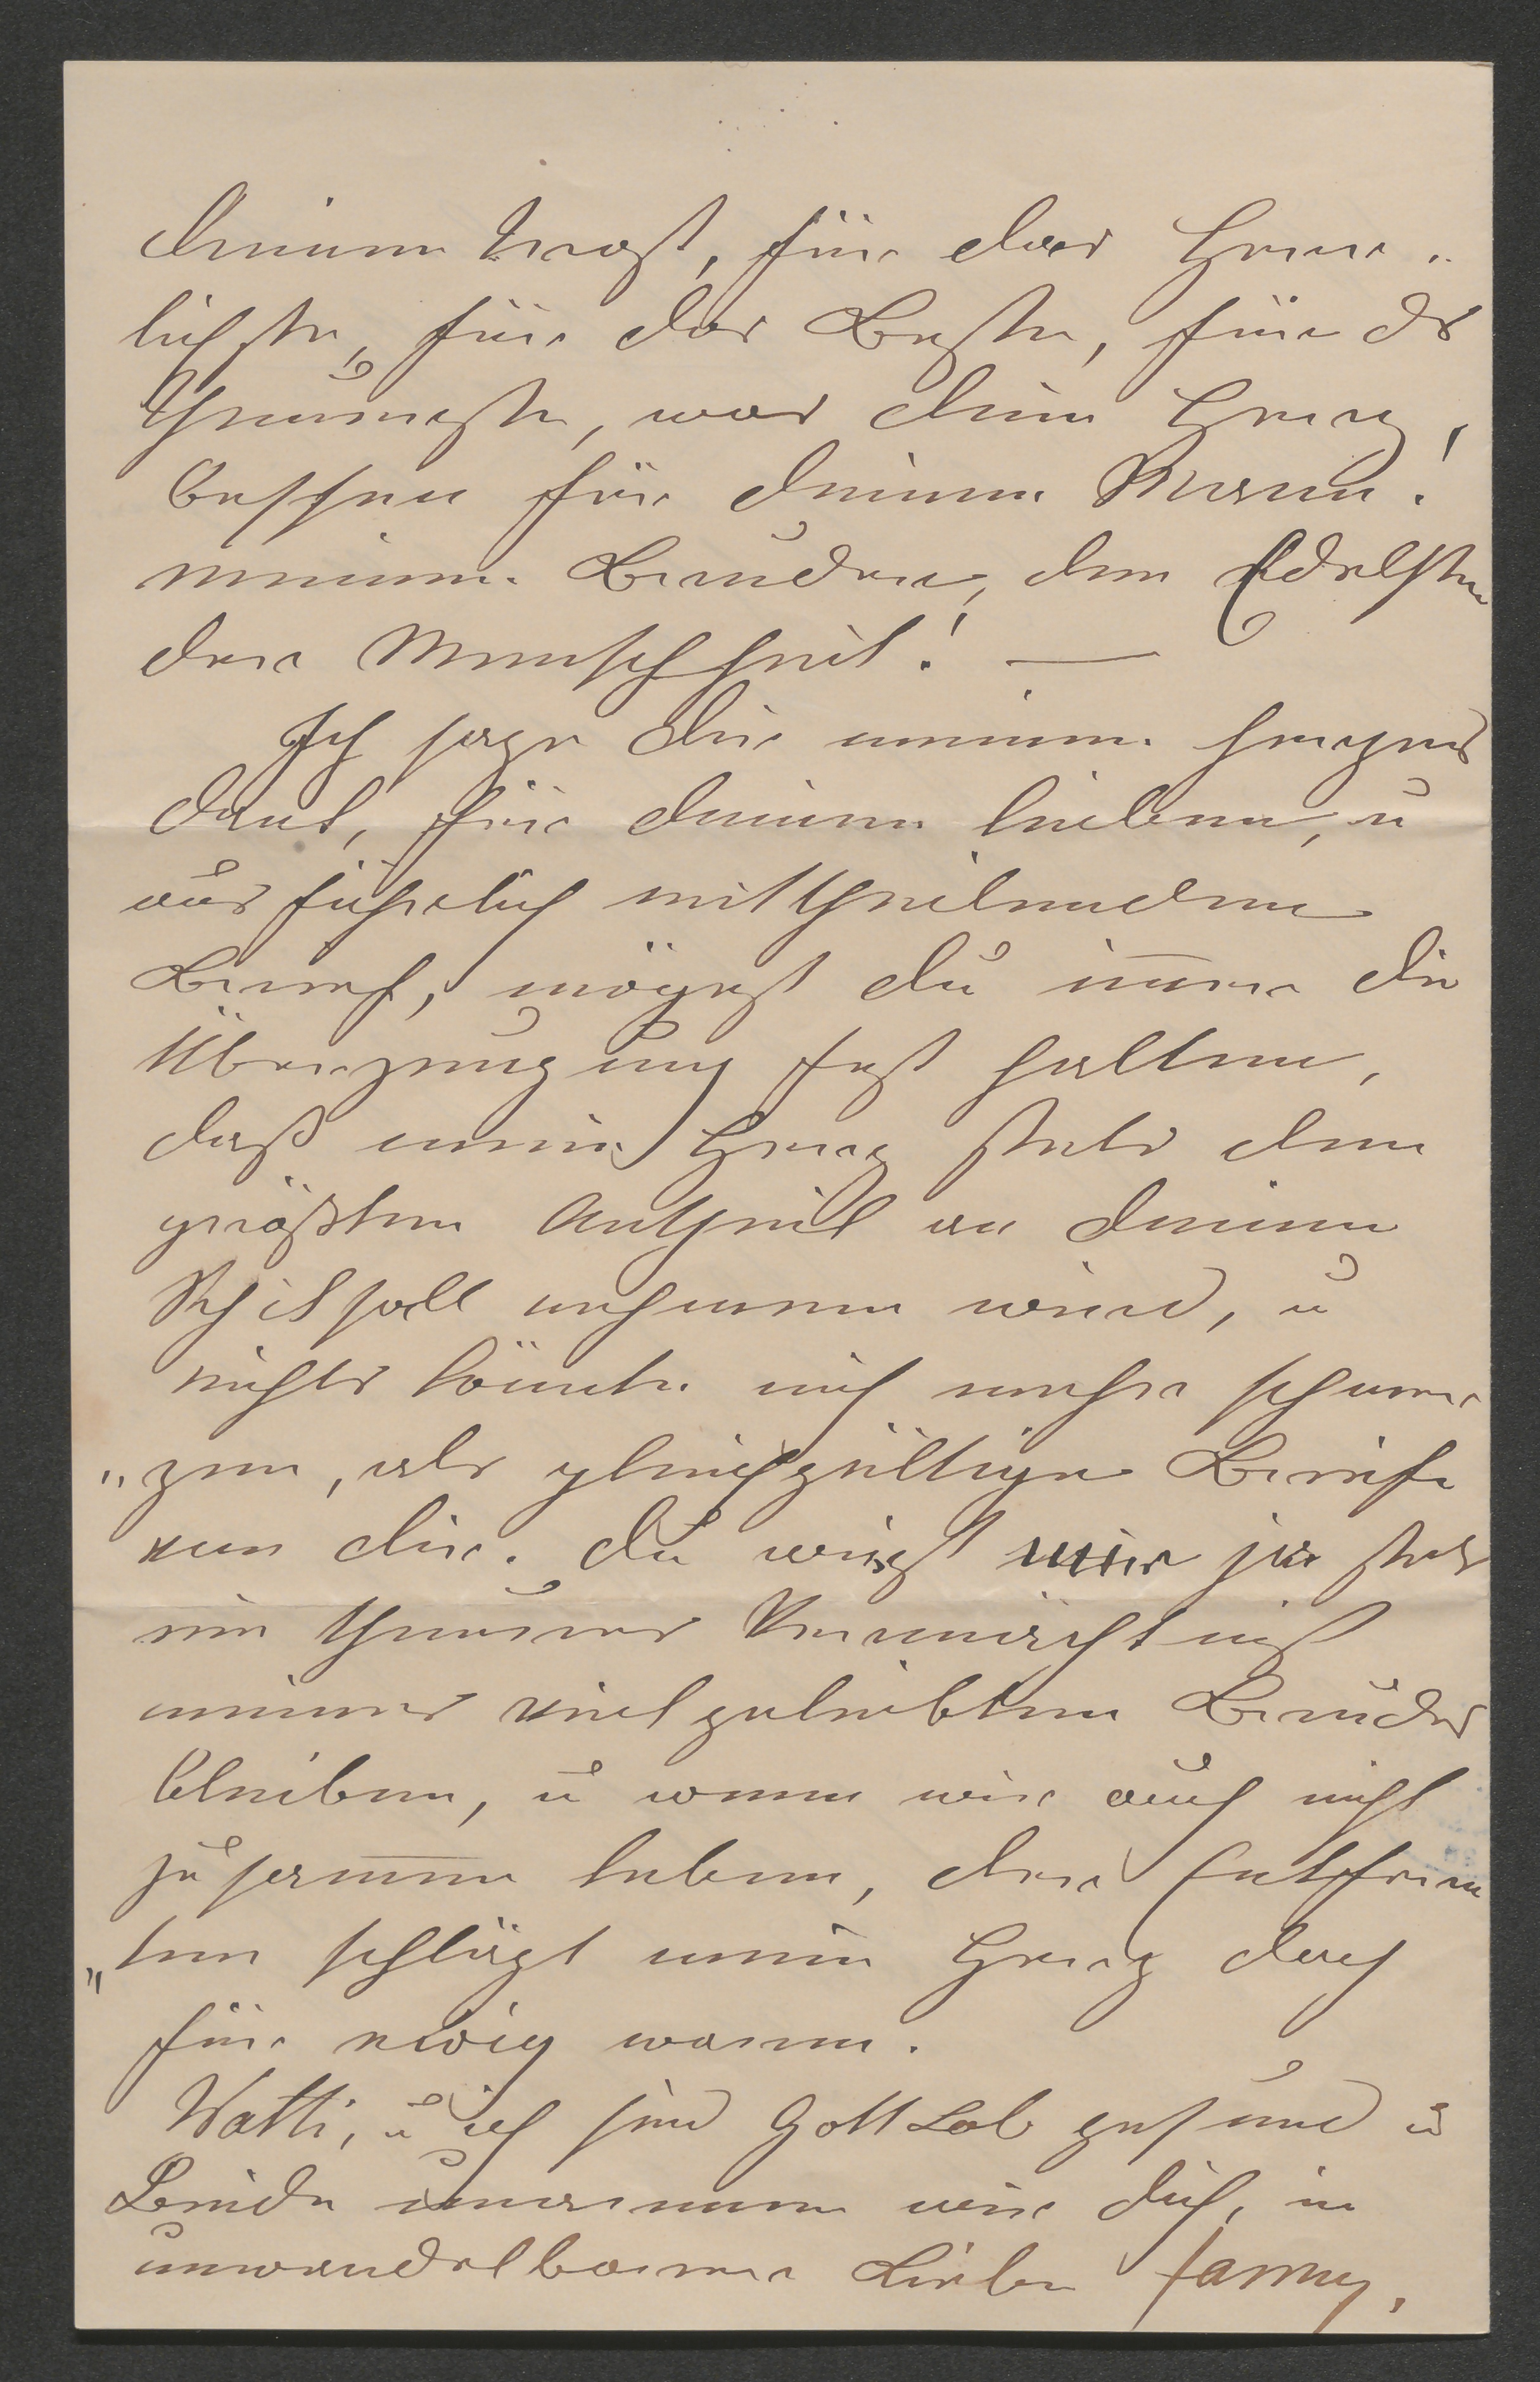 deinen Trost, für das Herr"
lichste, für das Beste, für ds
Theuerste, was dein Herz,
besessen für deinen Mann!
meinen Bruder, den Edelsten
der Menschheit! —
Ich sage dir meinen herzens
dank, für deinen lieben, u
ausführlich mittheilenden
Brief, mögest du im̅er die
Überzeugung fest halten,
daß mein Herz stets den
größten Antheil an deinen
Schiksall nehmen wird, u
nichts könnte mich mehr schmer
"zen, als gleichgültige Briefe
von dir. du wirst mir ja stets
ein theueres Vermächtniß
meines vielgeliebten Bruders
bleiben, u wenn wir auch nicht
zusam̅en leben, der Entfern
"ten schlägt mein Herz doch
für ewig warm.
Watti, u ich sind Gott Lob gesund u
Beide umarmen wir dich, in
unwandelbarer Liebe Fanny.